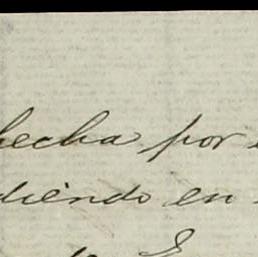 hecha por
diendo en